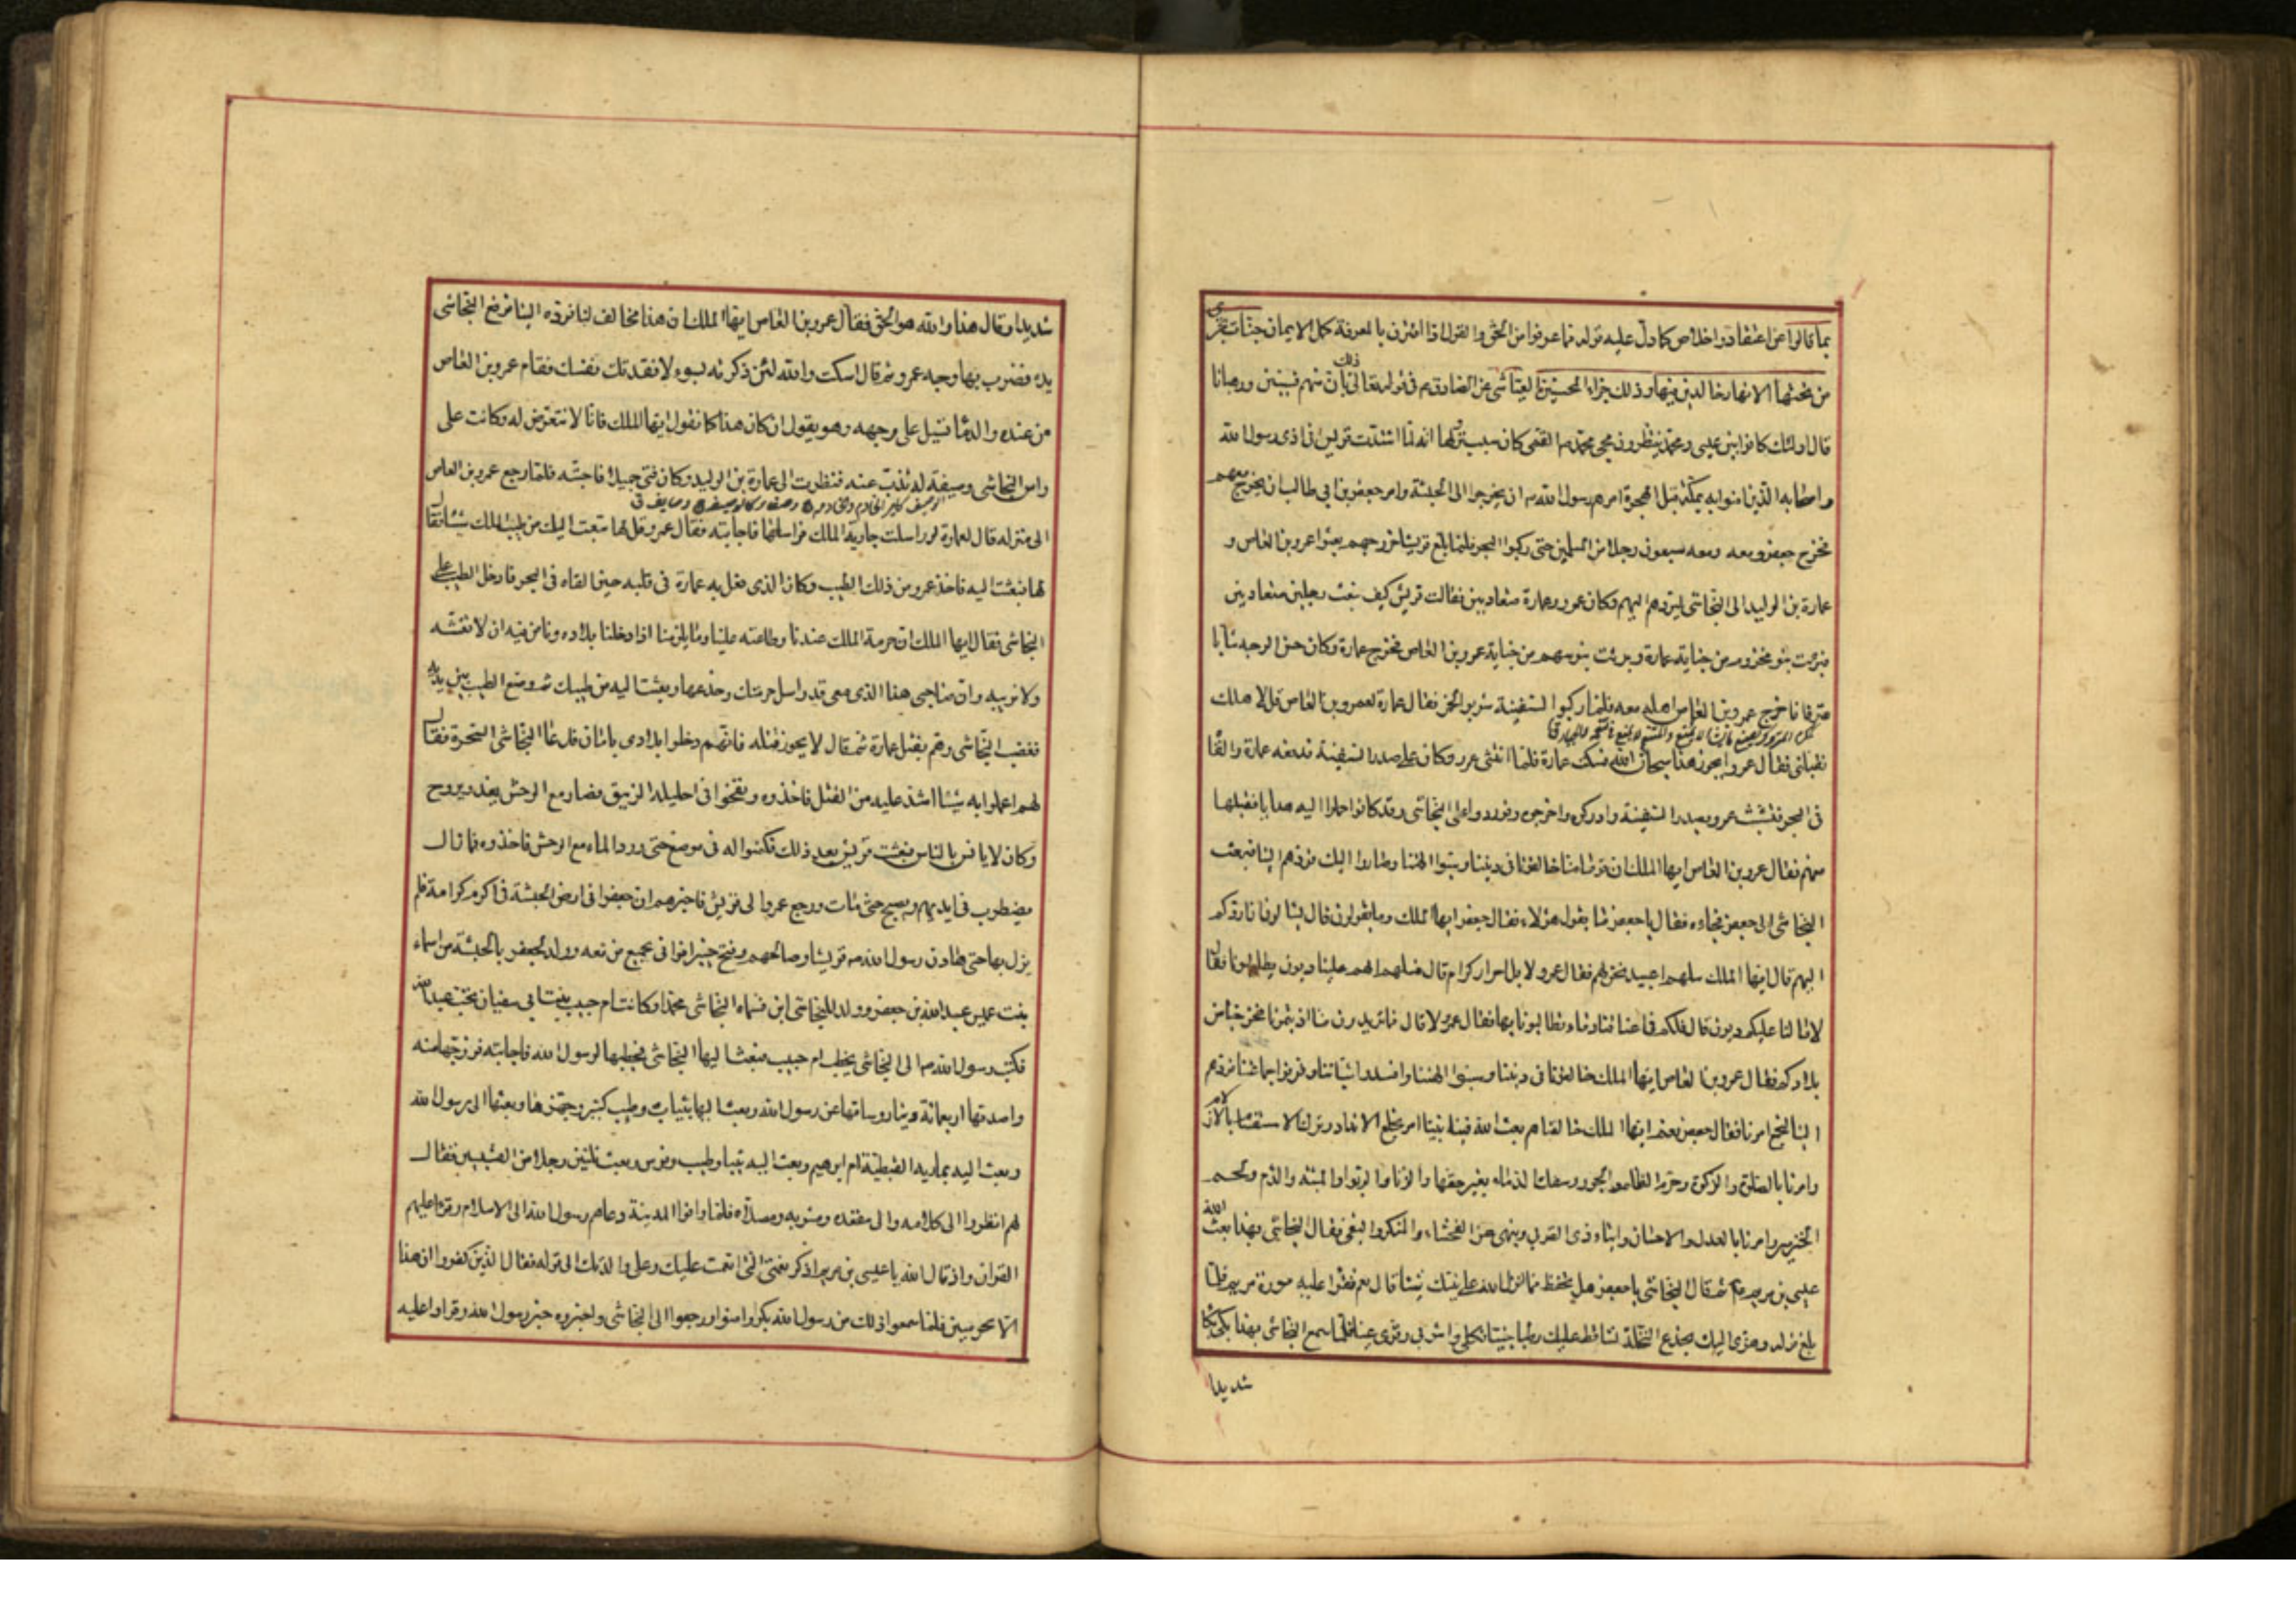 بما قالوا عن اعتقاد واخلاص كما دل عليه قوله مما عرفوا من الحق والقول اذا اقترن بالمعرفة كمل الايمان جنات تجرى
من تحتها الانهار خالدين فيها وذلك جزاء المحسنين العياشى عن الصادق ع فى قوله تعالى ذلك بان منهم قسيسين ورهبانا
قال اولئك كانوا بين عيسى ومحمد ينتظرون مجئ محمد ص القمى كان سبب نزولها انه لما اشتدت قريش فى اذى رسول الله
واصحابه الذين امنوا به بمكة قبل الهجرة امرهم رسول الله ص ان يخرجوا الى الحبشة وامر جعفر بن ابى طالب ان يخرج معهم
فخرج جعفر ومعه سبعون رجلا من المسلمين حتى ركبوا البحر فلما بلغ قريشا خروجهم بعثوا عمرو بن العاص و
عمارة بن الوليد الى النجاشى ليردهم اليهم وكان عمرو وعمارة متعاديين فقالت قريش كيف نبعث رجلين متعاديين
فبرئت بنو مخزوم من جناية عمارة وبرئت بنو سهم من جناية عمرو بن العاص فخرج عمارة وكان حسن الوجه شابا
مترفا فاخرج عمرو بن العاص اهله معه فلما ركبوا السفينة شربوا الخمر فقال عمارة لعمرو بن العاص قل لاهلك
تقبلنى فقال عمرو ايجوز هذا سبحان الله فسكت عمارة فلما انتشى عمرو وكان على صدر السفينة فدفعه عمارة والقاه
فى البحر فتشبث عمرو بصدر السفينة وادركوه واخرجوه فوردوا على النجاشى وقد كانوا حملوا اليه هدايا فقبلها
منهم فقال عمرو بن العاص ايها الملك ان قوما منا خالفونا فى ديننا وسبوا الهتنا وصاروا اليك فردهم الينا فبعث
النجاشى الى جعفر فجاءه فقال يا جعفر ما يقول هؤلاء فقال جعفر ايها الملك وما يقولون قال يسالون ان اردكم
اليهم قال ايها الملك سلهم اعبيد نحن لهم فقال عمرو لا بل احرار كرام قال فسلهم الهم علينا ديون يطالبونا فقال
لا ما لنا عليكم ديون قال فلكم فى اعناقنا دماء تطالبونا بها فقال عمرو لا قال فما تريدون منا اذيتمونا فخرجنا من
بلادكم فقال عمرو بن العاص ايها الملك خالفونا فى ديننا وسبوا الهتنا وافسدوا شباننا وفرقوا جماعتنا فردهم
الينا لنجمع امرنا فقال جعفر نعم ايها الملك خالفناهم بعث الله فينا نبيا امر بخلع الانداد وترك الاستقسام بالازلام
وامرنا بالصلوة والزكوة وحرم الظلم والجور وسفك الدماء بغير حقها والزنا والربوا والميتة والدم ولحم
الخنزير وامرنا بالعدل والاحسان وايتاء ذى القربى وينهى عن الفحشاء والمنكر والبغى فقال النجاشى بهذا بعث الله
عيسى بن مريم ع ثم قال النجاشى يا جعفر هل تحفظ مما انزل الله على نبيك شيئا قال نعم فقرا عليه سورة مريم فلما
بلغ قوله وهزى اليك بجذع النخلة تساقط عليك رطبا جنيا فكلى واشربى وقرى عينا فلما سمع النجاشى بهذا بكى بكاء
شديدا
شديدا وقال هذا والله هو الحق فقال عمرو بن العاص ايها الملك ان هذا مخالف لنا فرده الينا فرفع النجاشى
يده فضرب بها وجه عمرو ثم قال اسكت والله لئن ذكرته بسوء لافقدتك نفسك فقام عمرو بن العاص
من عنده والدما تسيل على وجهه وهو يقول ان كان هذا كما تقول ايها الملك فانا لا نتعرض له وكانت على
راس النجاشى وصيفة له تذب عنه فنظرت الى عمارة بن الوليد وكان فتى جميلا فاحبته فلما رجع عمرو بن العاص
الى منزله قال لعمارة لو راسلت جارية الملك فراسلها فاجابته فقال عمرو قل لها تبعث اليك من طيب الملك شيئا فقال
لها فبعثت اليه فاخذ عمرو من ذلك الطيب وكان الذى فعل به عمارة فى قلبه حين القاه فى البحر فادخل الطيب على
النجاشى فقال ايها الملك ان حرمة الملك عندنا وطاعته علينا وما يلزمنا اذا دخلنا بلاده ونامن فيه ان لا نغشه
ولا نريبه وان صاحبى هذا الذى معى قد راسل حرمتك وخدعها وبعثت اليه من طيبك ثم وضع الطيب بين يديه
فغضب النجاشى وهم بقتل عمارة ثم قال لا يجوز قتله فانهم دخلوا بلادى بامان فدعا النجاشى السحرة فقال
لهم اعملوا به شيئا اشد عليه من القتل فاخذوه ونفخوا فى احليله الزيبق فصار مع الوحش يغدو ويروح
وكان لا يانس بالناس فبعثت قريش بعد ذلك فكمنوا له فى موضع حتى ورد الماء مع الوحش فاخذوه فما زال
يضطرب فى ايديهم ويصيح حتى مات ورجع عمرو الى قريش فاخبرهم ان جعفرا فى ارض الحبشة فى اكرم كرامة فلم
يزل بها حتى هادن رسول الله ص قريشا وصالحهم وفتح خيبر فوافى بجميع من معه وولد لجعفر بالحبشة من اسماء
بنت عميس عبد الله بن جعفر وولد للنجاشى ابن فسماه النجاشى محمدا وكانت ام حبيب بنت ابى سفيان تحت عبد الله
فكتب رسول الله ص الى النجاشى يخطب ام حبيب فبعث اليها النجاشى فخطبها لرسول الله فاجابته فزوجها منه
واصدقها اربعمائة دينار وساقها عن رسول الله وبعث اليها بثياب وطيب كثير وجهزها وبعثها الى رسول الله
وبعث اليه بمارية القبطية ام ابرهيم وبعث اليه بثياب وطيب وفرس وبعث ثلثين رجلا من القسيسين فقال
لهم انظروا الى كلامه والى مقعده ومشربه ومصلاه فلما وافوا المدينة دعاهم رسول الله الى الاسلام وقرا عليهم
القران واذ قال الله يا عيسى بن مريم اذكر نعمتى التى انعمت عليك وعلى والدتك الى قوله فقال الذين كفروا ان هذا
الا سحر مبين فلما سمعوا ذلك من رسول الله بكوا وامنوا ورجعوا الى النجاشى واخبروه خبر رسول الله وقراوا عليه